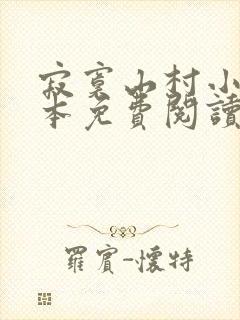 寂寞山村小
本免費閱讀
羅賓-懷特